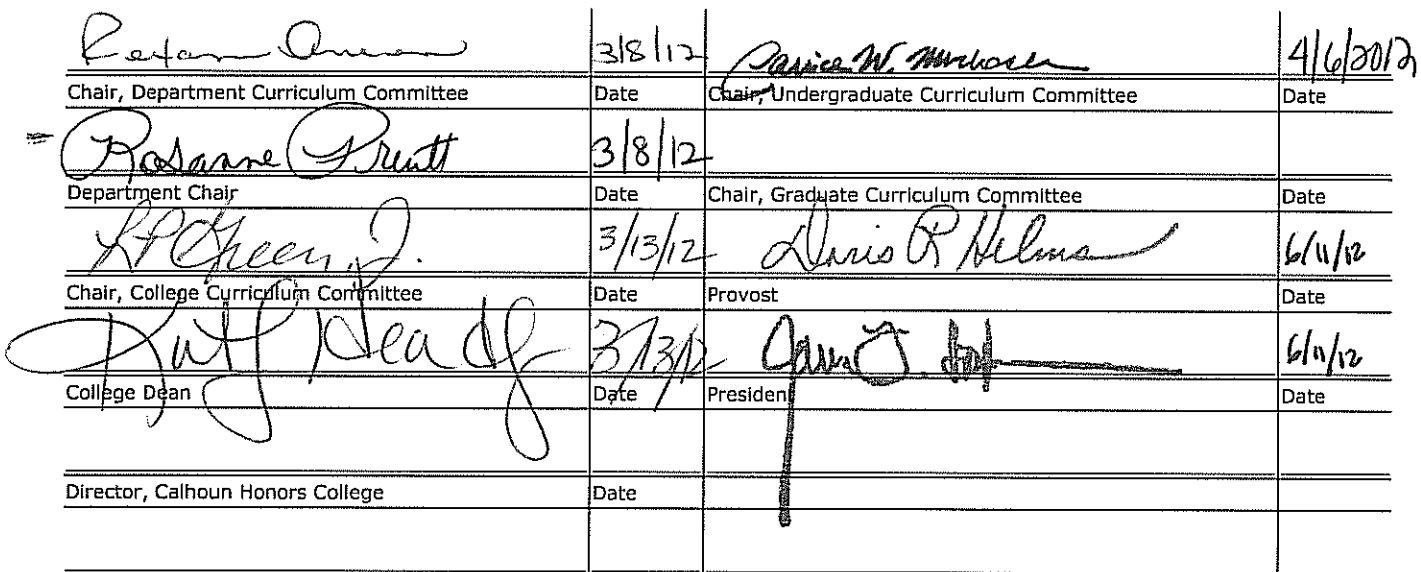 3/8/12 Janice W. 4/6/2012
Chair, Department Curriculum Committee Date Chair, Undergraduate Curriculum Committee Date
Rosanne Pruitt 3/8/12
Department Chair Date Chair, Graduate Curriculum Committee Date
LP Green, J. 3/13/12 Doris R Helms 6/11/12
Chair, College Curriculum Committee Date Provost Date
3/13/12 6/11/12
College Dean Date President Date
Director, Calhoun Honors College Date